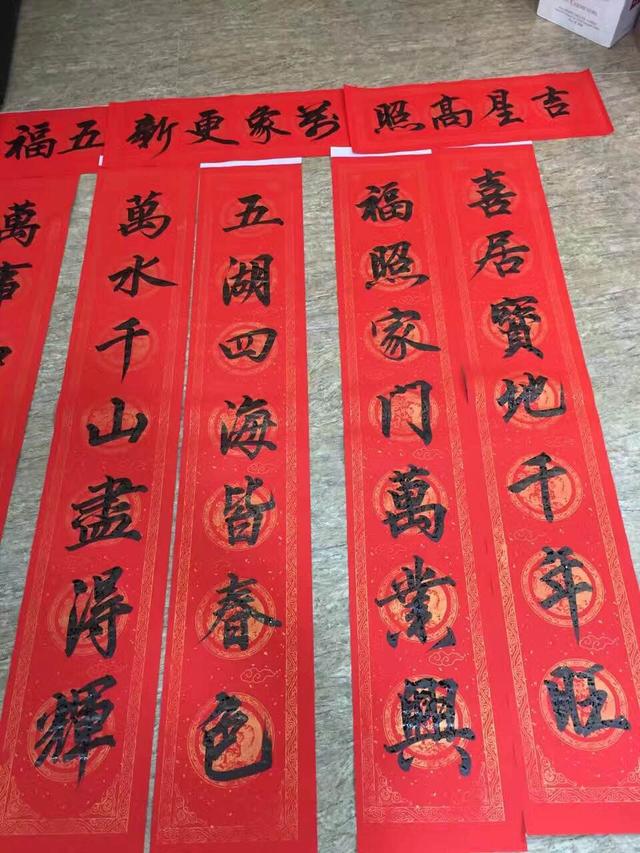 吉星髙照
喜居寶地千年旺
福照家门萬業興
万象更新
五湖四海皆春色
萬水千山盡得輝
五福
萬事